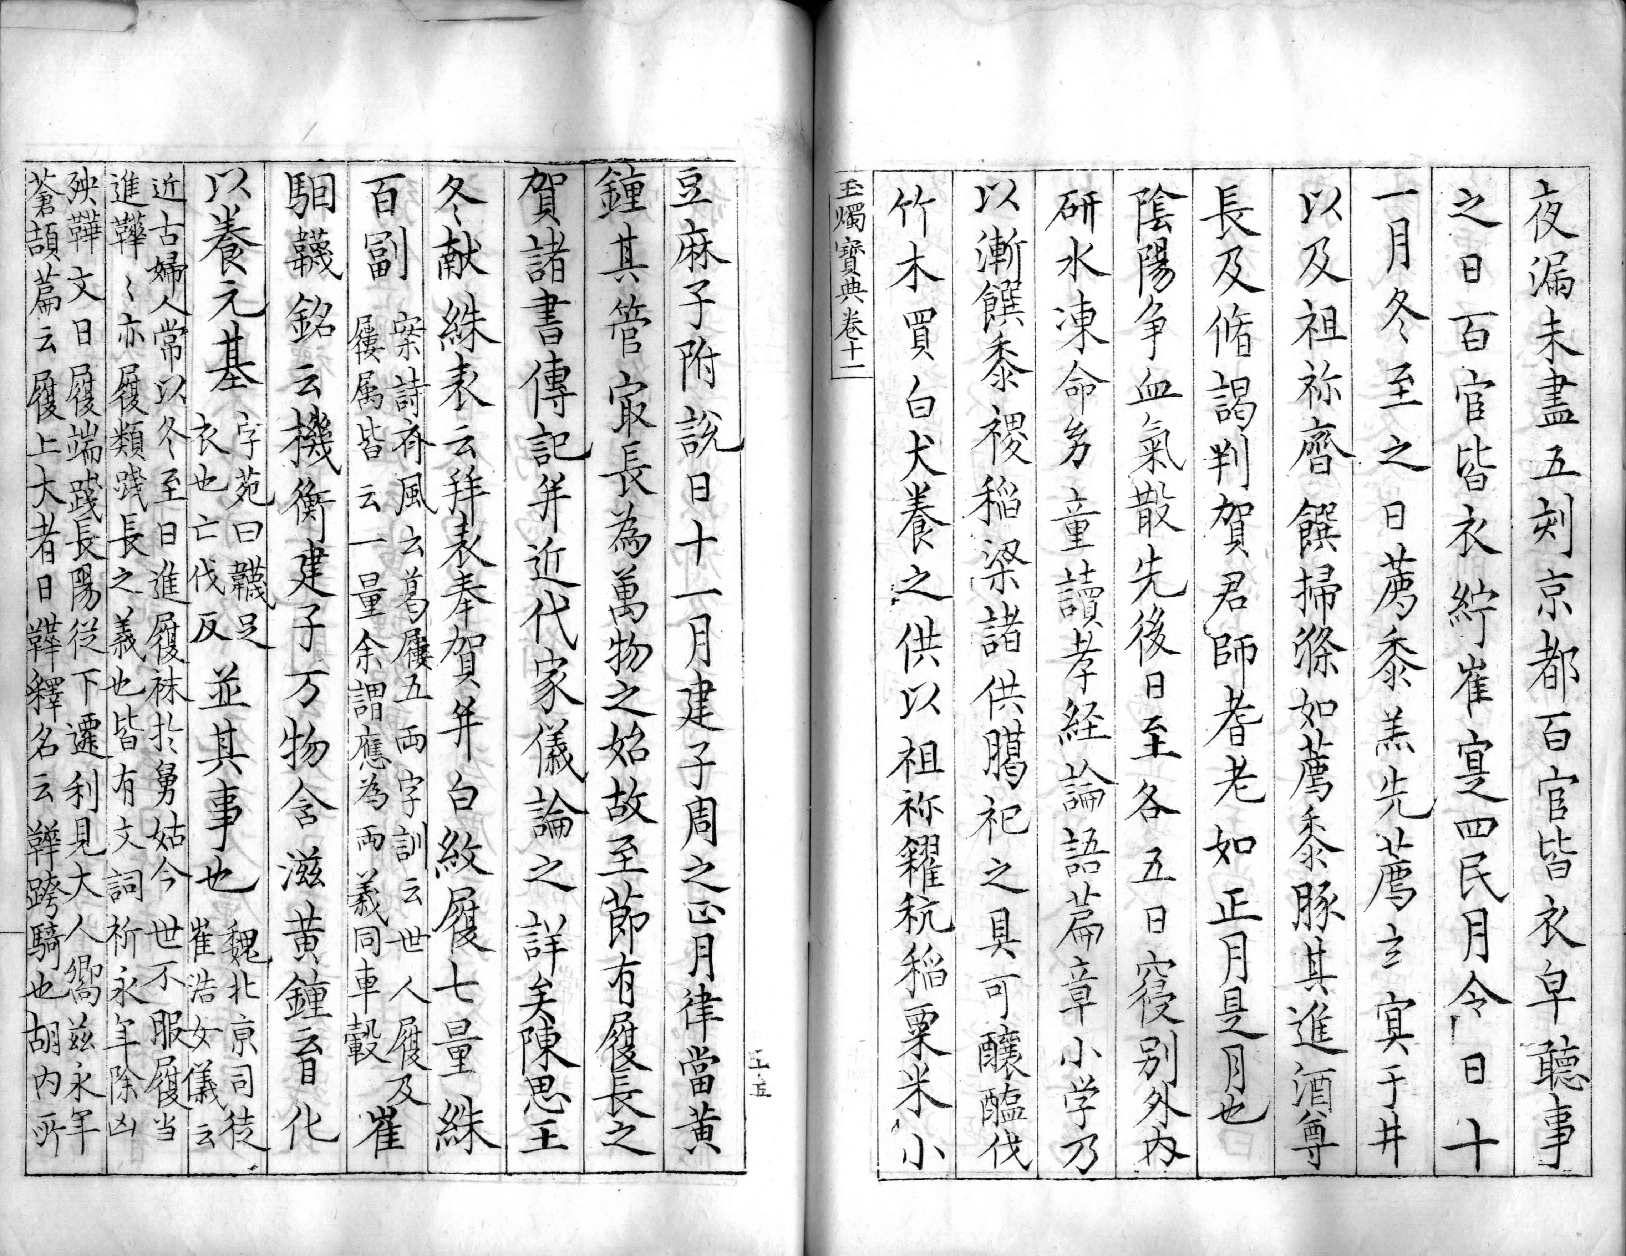 夜漏未盡五刻京都百官皆衣皁聽事
之日百官皆衣紵崔寔四民月令日十
一月冬至之日薦黍羔先薦玄冥于井
以及祖祢齊饌掃滌如薦黍豚其進酒尊
長及脩謁判賀君師耆老如正月是月也
陰陽争血氣散先後日至各五日寑别外内
研水凍命㓜童讀孝経論語萹章小学乃
以漸饌黍稷稲梁諸供臈祀之具可釀醢伐
竹木買白犬養之供以祖祢糴秔稲粟米小
玉燭寳典巻十一
豆麻子附説日十一月建子周之正月律當黄
鐘其管㝡長為萬物之始故至莭有履長之
賀諸書傳記并近代家儀論之詳矣陳思王
冬献絑表云拜表奉賀并白紋履七量絑
百副
案詩斉風云葛屨五両字訓云世人履及
屨属皆云一量余謂應為両義同車轂
崔
駰韈銘云機衡建子万物含滋黄鐘育化
以養元基
字苑曰韈足
衣也亡伐反
並其事也
魏北京司徒
崔浩女儀云
近古婦人常以冬至日進履袜扵舅姑今世不服履当
進鞾〻亦履類踐長之義也皆有文詞祈永年除凶
殃鞾文日履端踐長陽従下遷利見大人嚮兹永年
蒼頡萹云履上大者日鞾釋名云鞾跨騎也胡内所